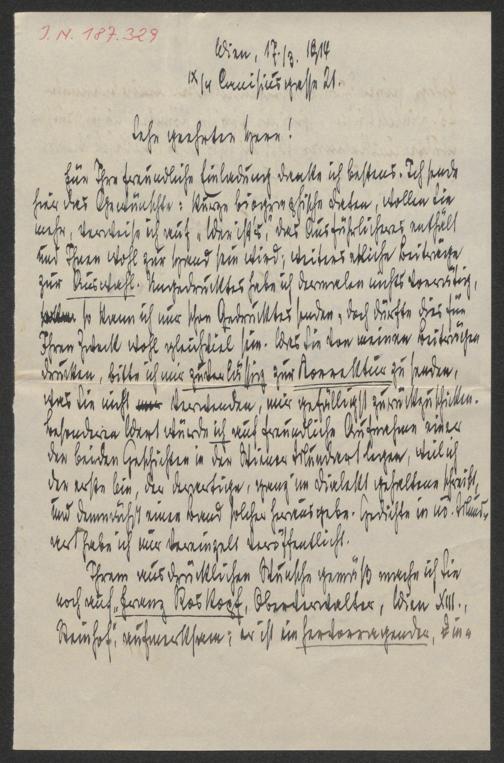 I. N. 187.329
Wien, 17./3. 1914
IX/4 Canisiusgasse 21.
Sehr geehrter Herr!
Für Ihre freundliche Einladung danke ich bestens. Ich sende
hier das Gewünschte: kurze biographische Daten, wollen Sie
mehr, verweise ich auf „Wer ist's", das Ausführlicheres enthält
und Ihnen wohl zur Hand sein wird; weiters etliche Beiträge
zur Auswahl. Ungedrucktes habe ich dermalen nichts vorrätig,
so kann ich nur schon Gedrucktes senden, doch dürfte dies für
Ihren Zweck wohl gleichviel sein. Was Sie von meinen Beiträgen
drucken, bitte ich mir zuverlässig zur Korrektur zu senden,
was Sie nicht verwenden, mir gefälligst zurückzuschicken.
Besonderen Wert würde ich auf freundliche Aufnahme einer
der beiden Geschichten in der Wiener Mundart legen, weil ich
der erste bin, der derartige, ganz im Dialekt gehaltene schreibt,
und demnächst einen Band solcher herausgebe. Gedichte in nö. Mund-
art habe ich nur vereinzelt veröffentlicht.
Ihrem ausdrücklichen Wunsche gemäß mache ich Sie
noch auf „Franz Roskopf, Oberverwalter, Wien XIII.,
Steinhof", aufmerksam; er ist ein hervorragender,